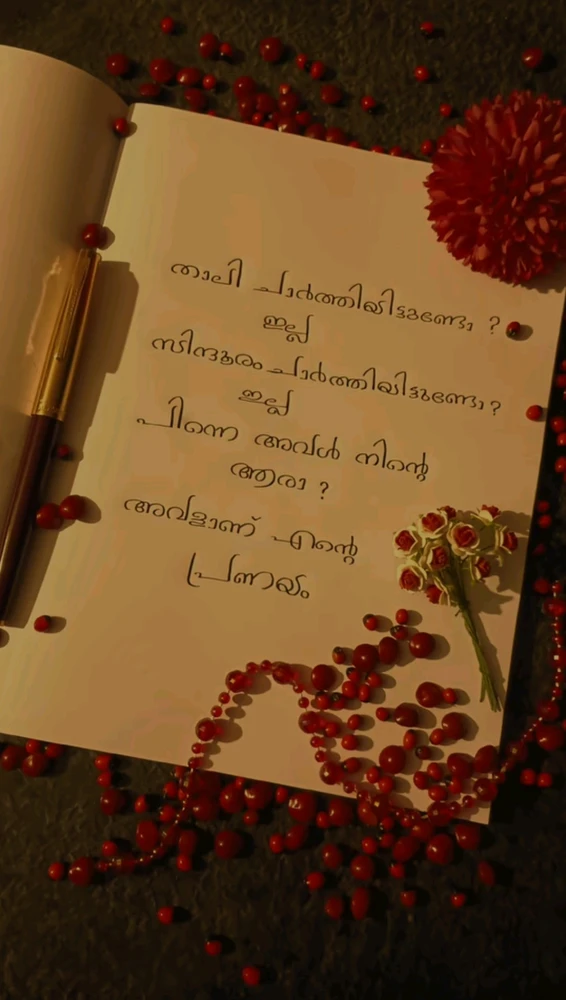 താലി ചാർത്തിയിട്ടുണ്ടോ ?
ഇല്ല
സിന്ദൂരം ചാർത്തിയിട്ടുണ്ടോ ?
ഇല്ല
പിന്നെ അവൾ നിന്റെ
ആരാ ?
അവളാണ് എന്റെ
പ്രണയം